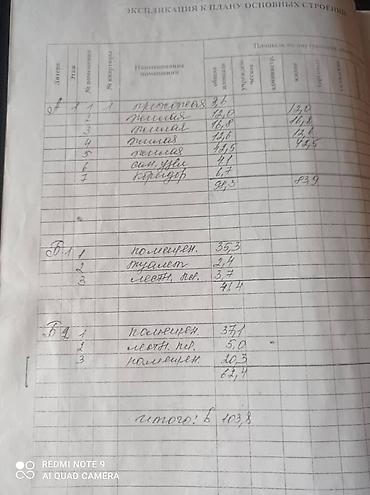 ЭКСПЛИКАЦИЯ К ПЛАНУ ОСНОВНЫХ СТРОЕНИЙ
Литера Этаж № помещения № квартиры Наименование помещения общая площадь учрежденческая администр. жилая
А 1 1 1 прихожая 3,6
2 жилая 12,0 12,0
3 жилая 16,8 16,8
4 жилая 12,6 12,6
5 жилая 42,5 42,5
6 сан. узел 4,1
7 коридор 6,7
98,3 83,9
Б 1 1 помещен. 35,3
2 туалет 2,4
3 лестн. кл. 3,7
41,4
Б 2 1 помещен. 37,1
2 лестн. кл. 5,0
3 помещен. 20,3
62,4
итого: Б 103,8
REDMI NOTE 9
AI QUAD CAMERA